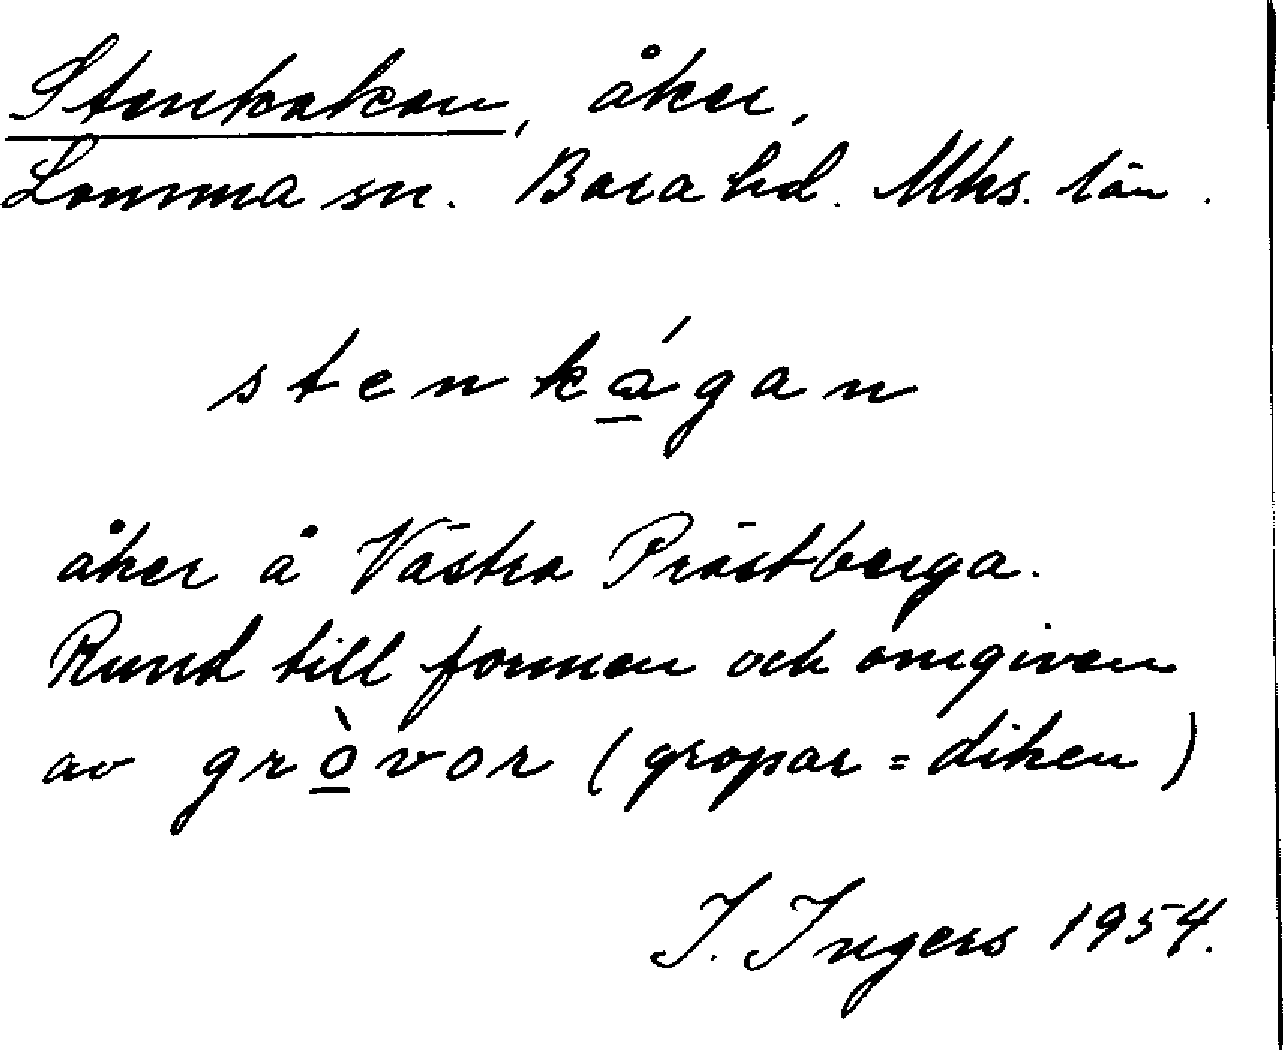 Stenkakan, åker,
Lomma sn. Bara hd. Mhs. län.
stenká̱gan
åker å Västra Prästberga.
Rund till formen och omgiven
av grò̱vor (gropar = diken)
I. Ingers 1954.